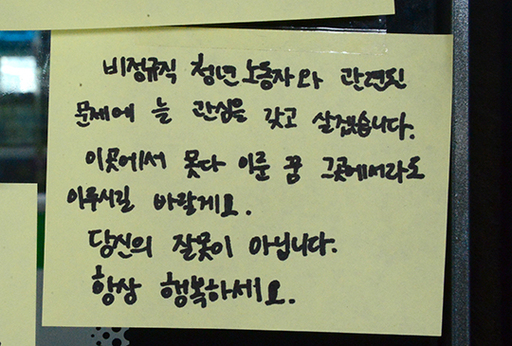 비정규직 청년노동자와 관련된
문제에 늘 관심을 갖고 살겠습니다.
이곳에서 못다 이룬 꿈 그곳에서라도
이루시길 바랄게요.
당신의 잘못이 아닙니다.
항상 행복하세요.